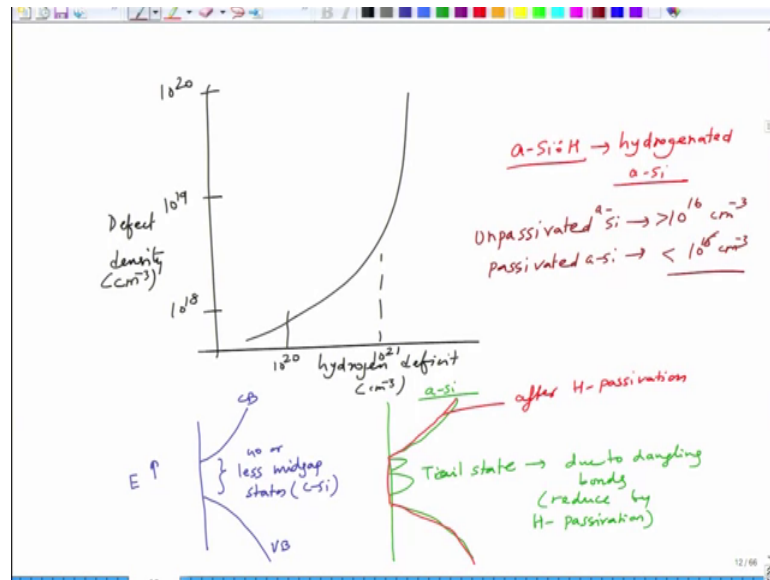 10²⁰
10¹⁹
Defect
density
(cm⁻³)
10¹⁸
10²⁰
10²¹
hydrogen deficit
(cm⁻³)
a-Si:H → hydrogenated
a-si
Unpassivated a-si → >10¹⁶ cm⁻³
passivated a-si → < 10¹⁶ cm⁻³
CB
E ↑
no or
less midgap
states (c-si)
VB
a-si
after H-passivation
Tail state → due to dangling
bonds
(reduce by
H-passivation)
12/66